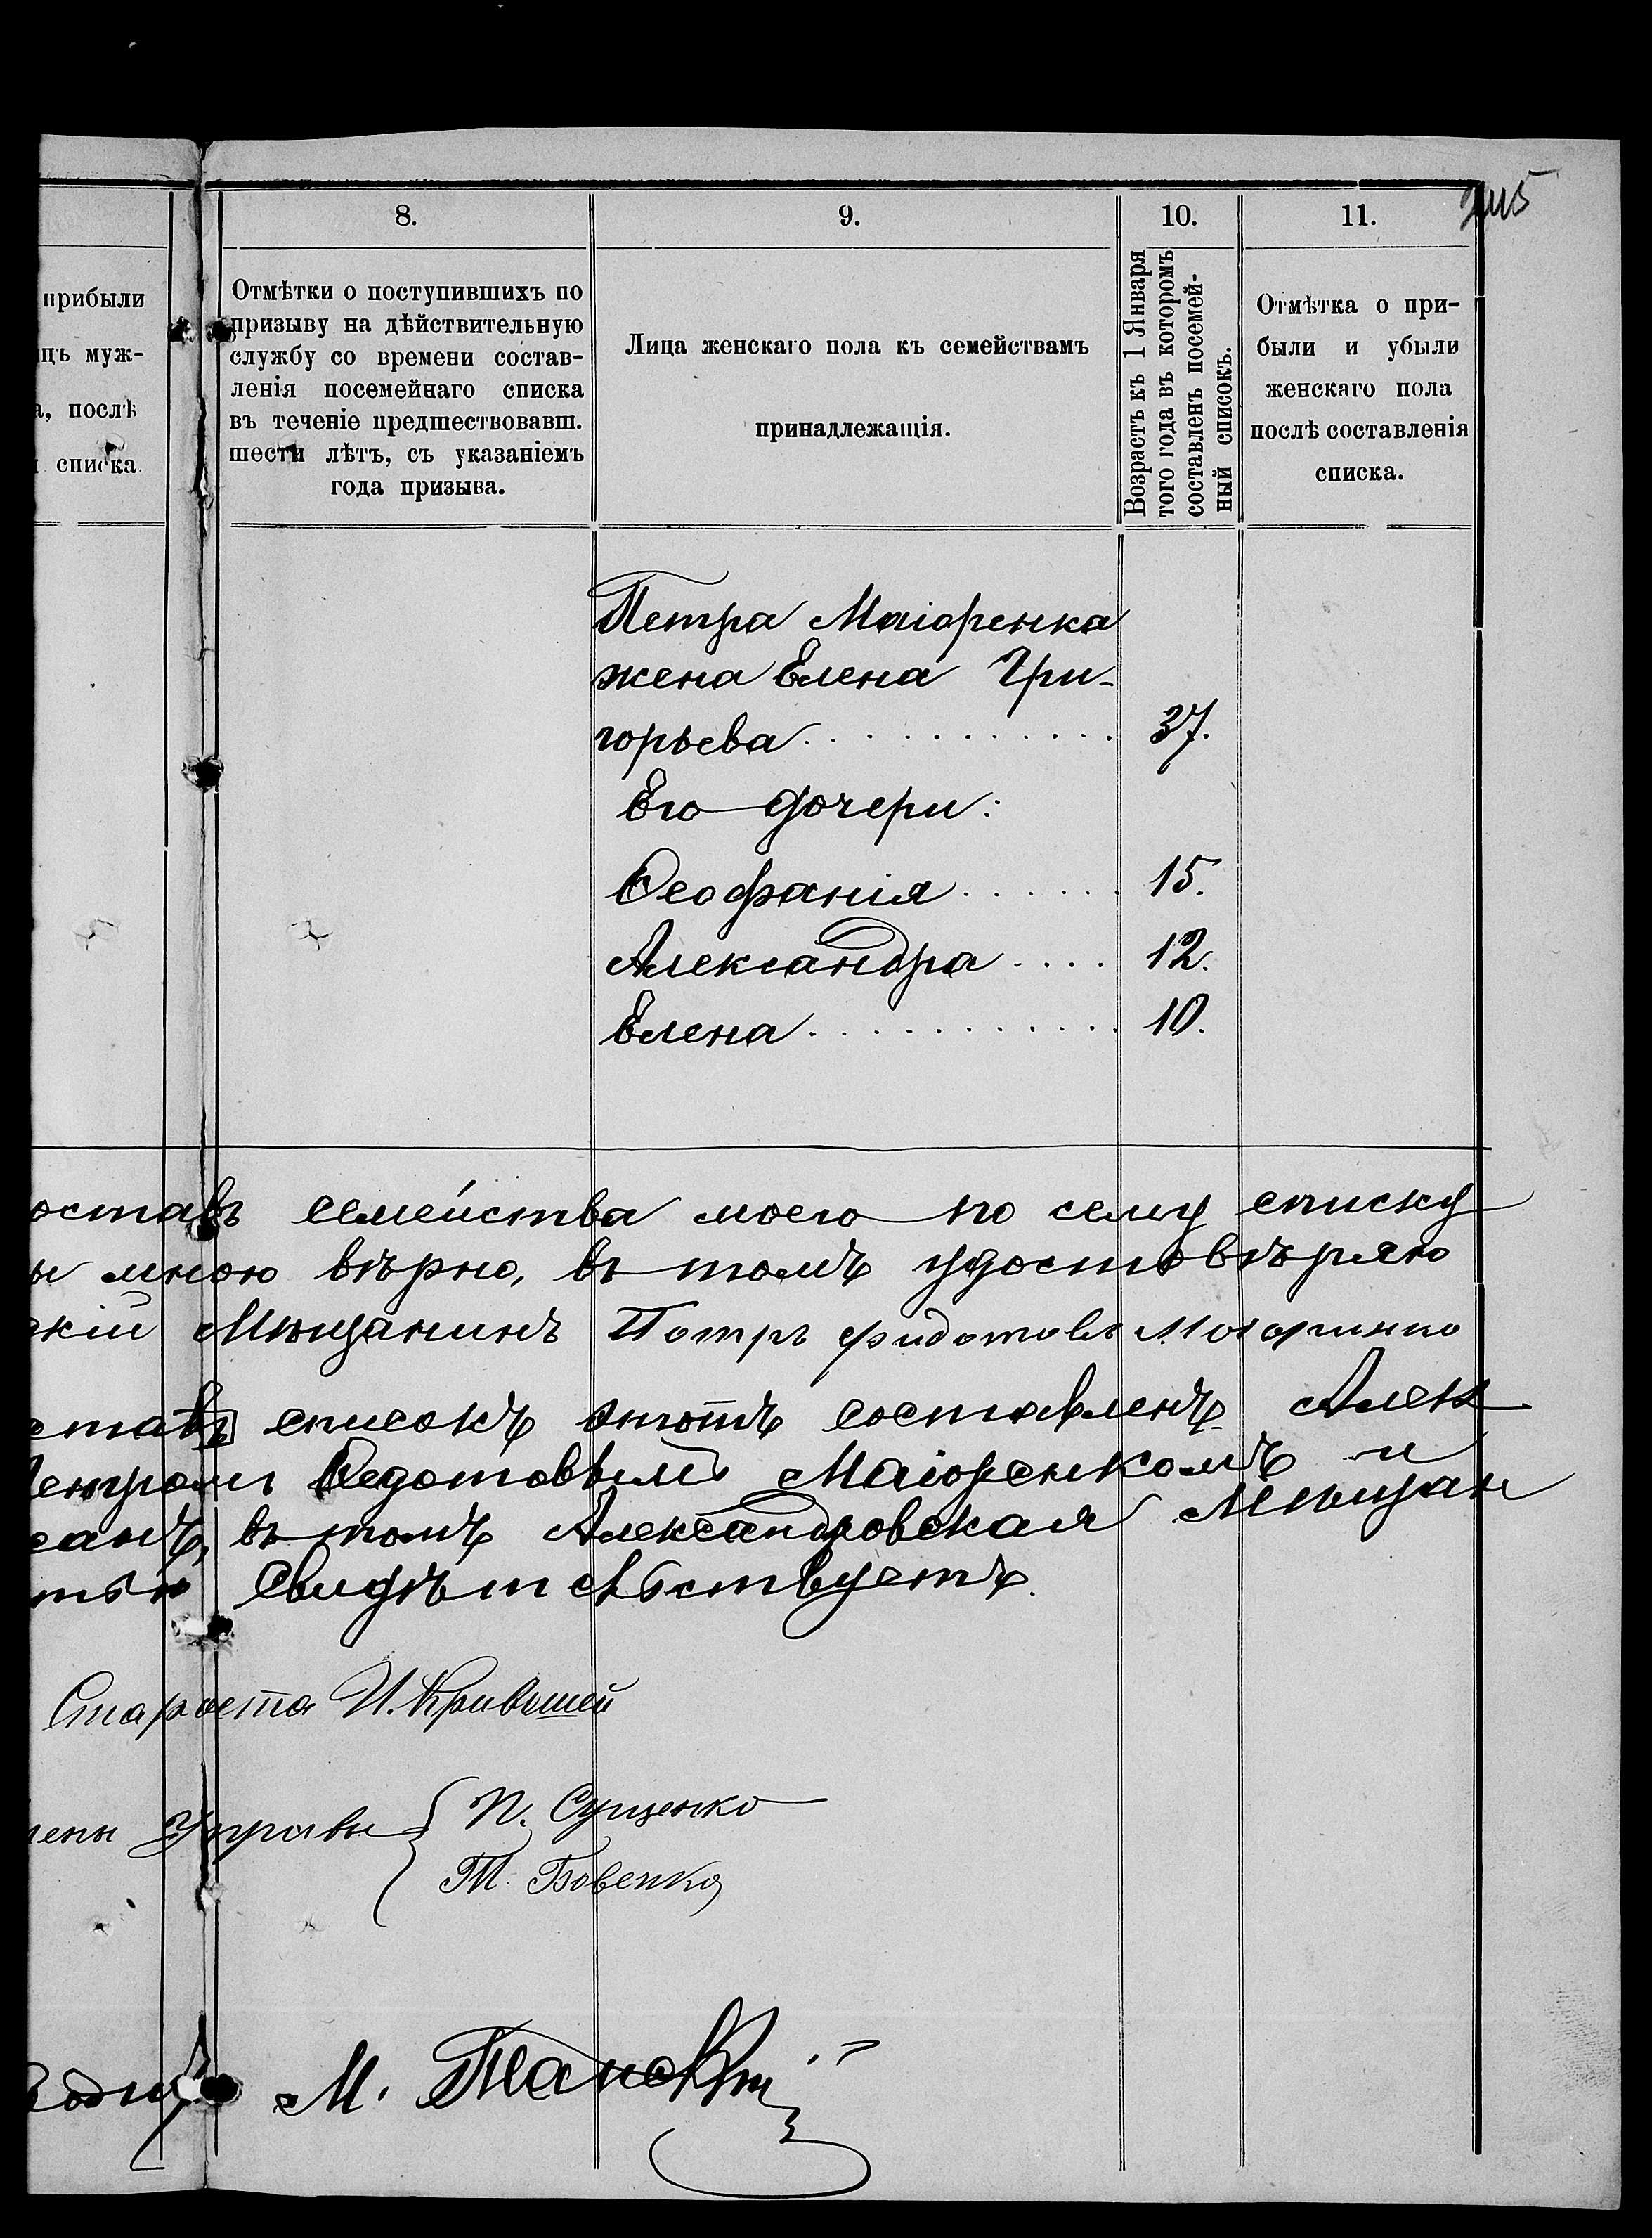 8.
9.
10.
11.
прибыли
цъ муж-
а, послѣ
списка.
Отмѣтки о поступившихъ по
призыву на дѣйствительную
службу со времени состав-
ленія посемейнаго списка
въ теченіе предшествовавш.
шести лѣтъ, съ указаніемъ
года призыва.
Лица женскаго пола къ семействамъ
принадлежащія.
Возрастъ къ 1 Января
того года въ которомъ
составленъ посемей-
ный списокъ.
Отмѣтка о при-
были и убыли
женскаго пола
послѣ составленія
списка.
Петра Маіоренка
жена Елена Гри-
горьева . . . . . . . . . . . 37.
Его дочери:
Ѳеофанія . . . . . . 15.
Александра . . . . 12.
Елена . . . . . . . . . . . 10.
оставъ семейства моего по сему списку
ы мною вѣрно, въ томъ удостовѣряю
скій Мѣщанинъ Потръ Фидотовъ
списокъ этотъ составленъ Алек
Петромъ Ѳедотовымъ Маіоренкомъ и
санъ, въ томъ Александровская Мѣщан
свидѣтельствуетъ.
Староста И. Кривошей
лены Управы { П. Сущенко
Т. Бовенко
М.